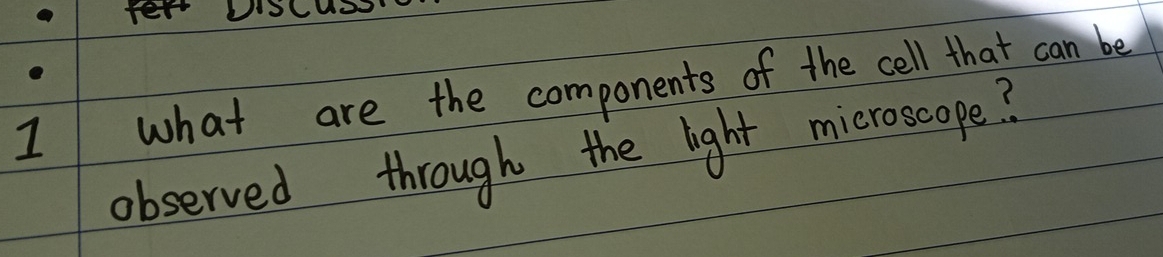 Discussion
1 What are the components of the cell that can be
observed through the light microscope?